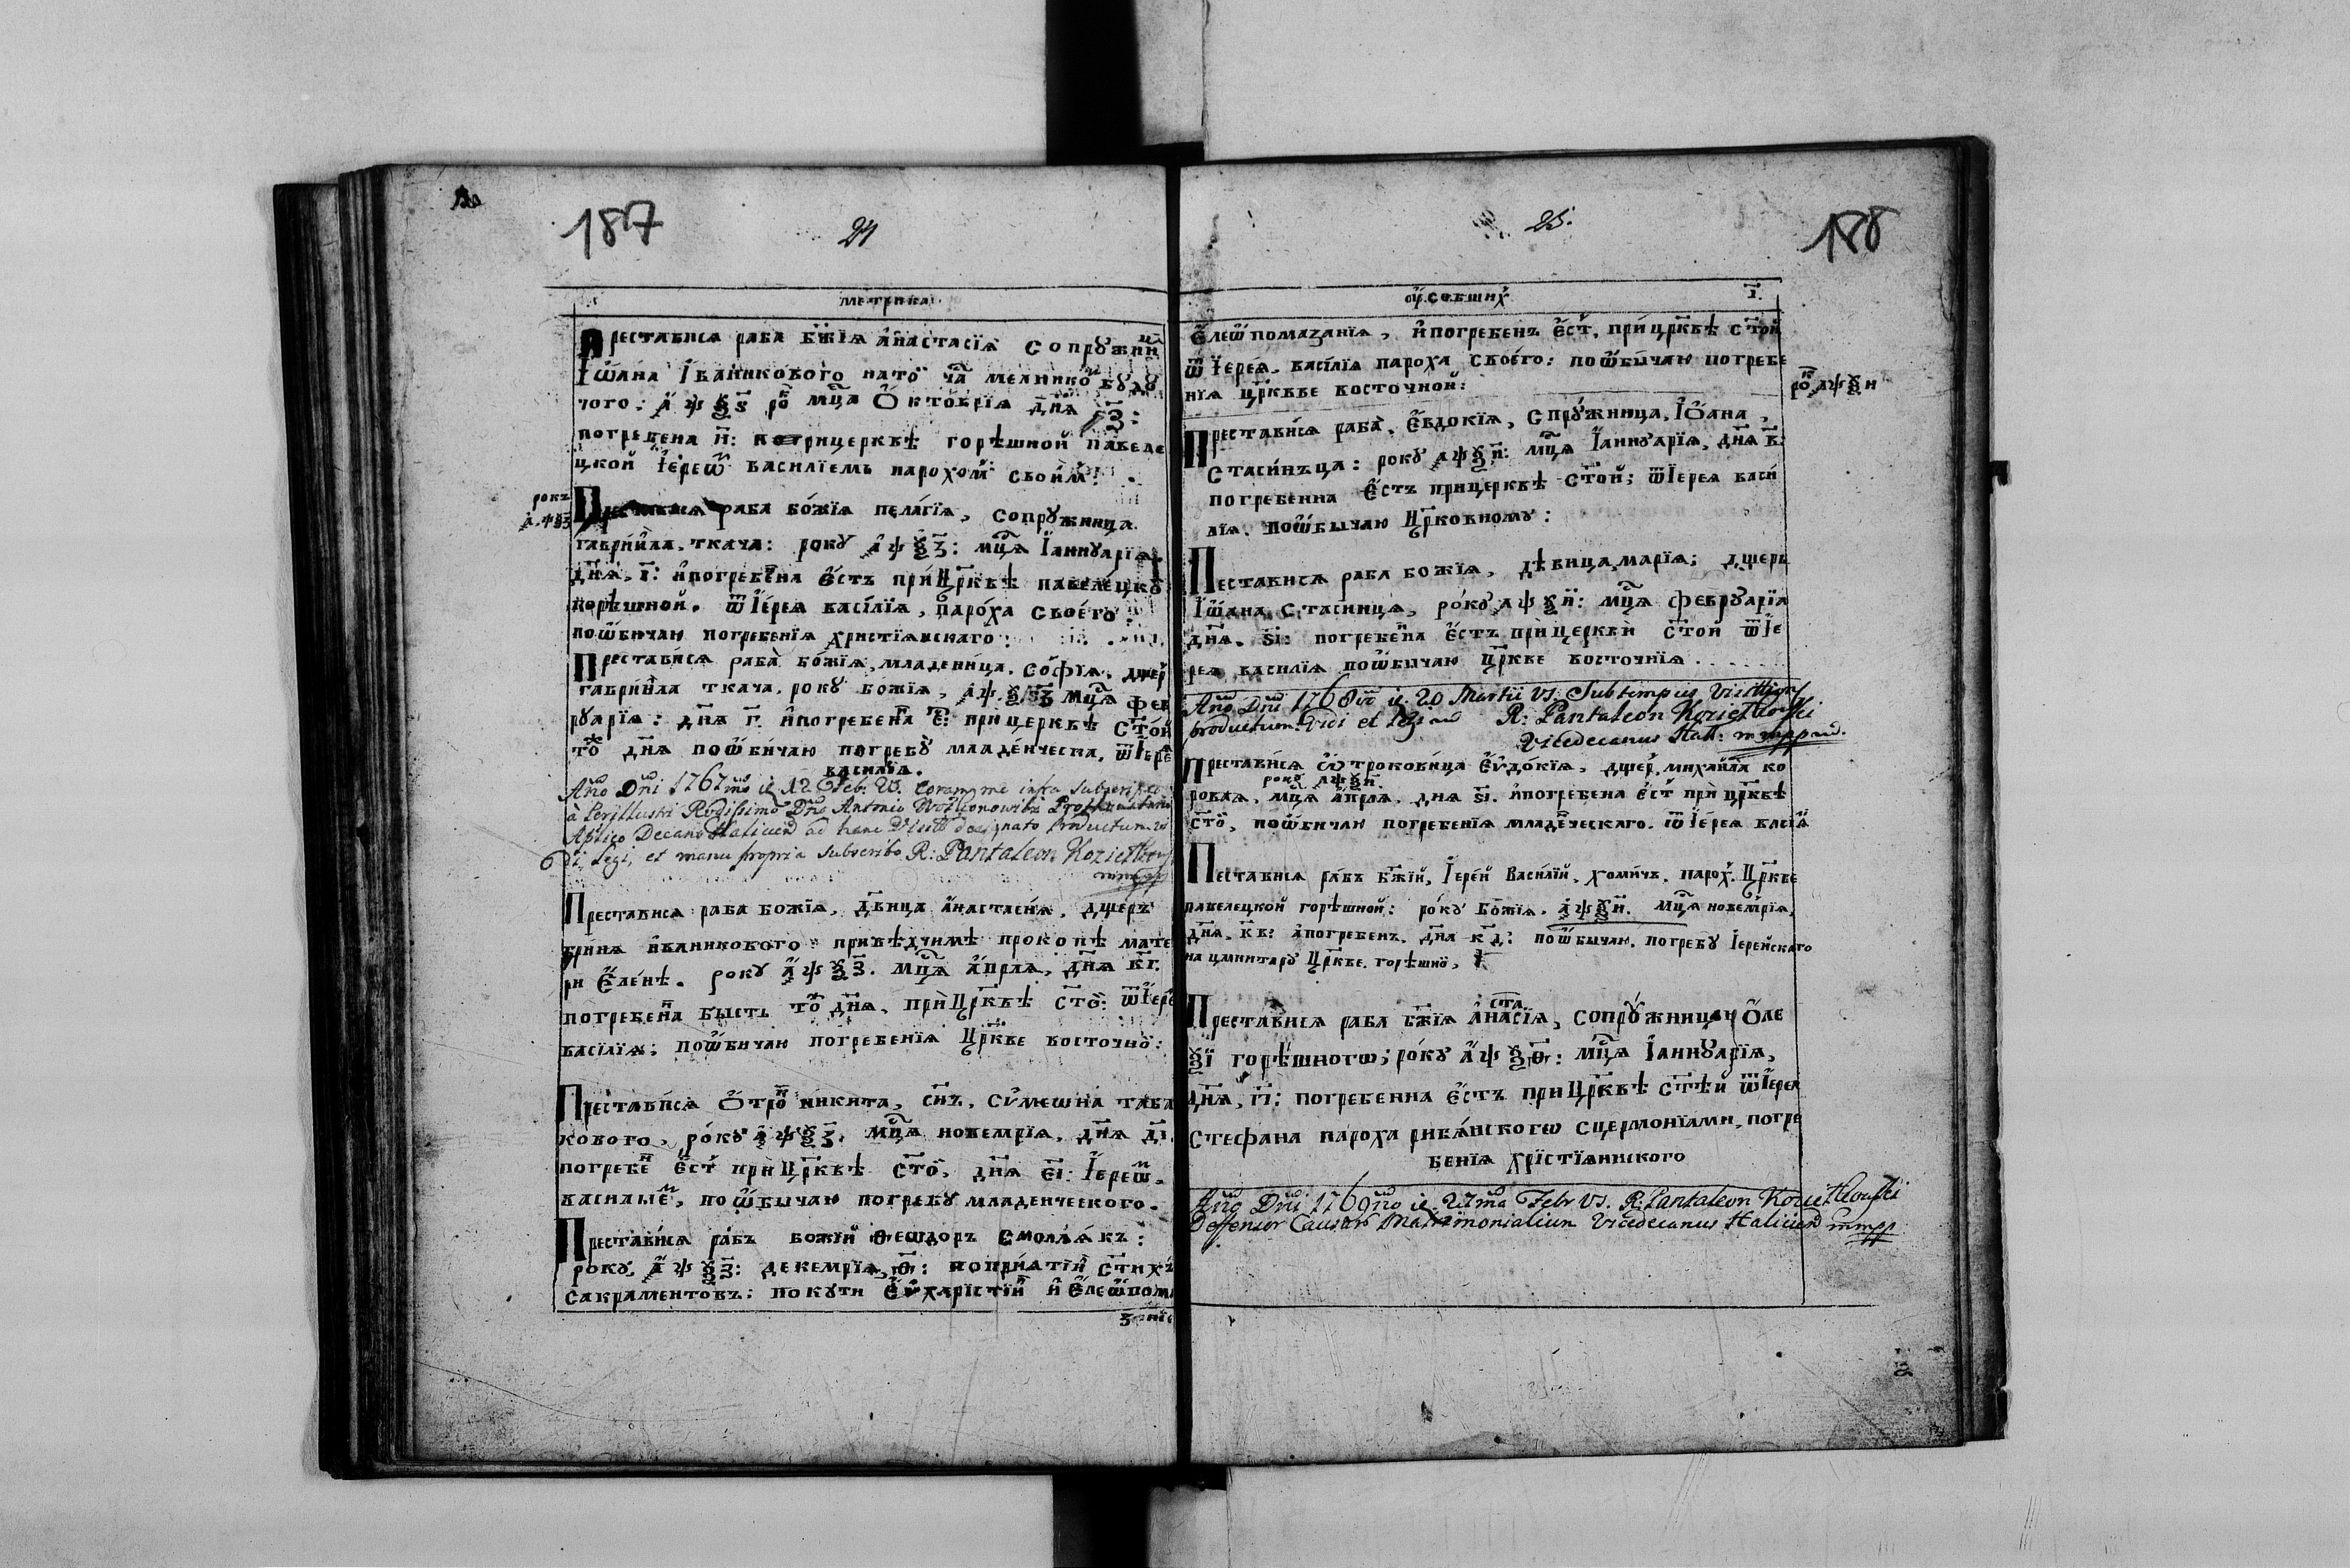 187
24
метрика
Преставися раба бж҃їя анастасїя сопружни
Іѡана Іваникового на тоⷵ ча҃ мелникоⷡ будꙋ
чого: ҂аѱѯѕ роⷦ҇ мц҃а Ѡктоврїя дн҃я з҃:
погребена и҃: при церквѣ горѣшной павеле
цкой Іереѡⷨ василїемь парохомъ своимъ:
рокъ
҂аѱѯз
раба божїя пелагїя, сопружница
гаврїила, ткача: рокꙋ ҂аѱѯз: мц҃а Їаннꙋарїя
дн҃я, і҃: и погребеⷩа естъ при Цр҃квѣ павелецкоⷨ
горѣшной. ѿ Іерея васілїя, пароха своего:
по ѡбичаю погребенїя христїянскаго:
Преставися раба божїя, младеница, софїя, дщеⷬ
гаврїила ткача, рокꙋ божїя, ҂аѱѯз мц҃а фев
рꙋарїя: дн҃я г҃. и погребена е҃: при церквѣ ст҃ой
тоⷢ дн҃я по ѡбичаю погребꙋ младенческа, ѿ Іерея
василїя.
Año Dñi 1767mo ie 12 Feb: V.S. Coram me infra Subscripto
à Perillustri Rvdissimo Dño Antonio
Aptico Decano Haliciend ad hanc Visitt designato Productum
Vidi, Legi, et manu propria Subscribo R: Pantaleon Kozietkows
mmpp
Преставися раба божїя, двица анастасия, дщеръ
юрїия иваникового: привѣдчимъ прокопѣ мате
ри Еленѣ. рокꙋ ҂аѱѯз. мц҃а апрлѧ, дн҃я кг҃.
погребеⷩа бысть тоⷢ дн҃я, при Цр҃квѣ ст҃оⷨ: ѿ Іере
васілїя; по ѡбичаю погребенїя Цр҃кве восточноⷨ:
Преставися Ѡтроⷦ никита, сн҃ъ, сѵмеѡна таба
кового, рокꙋ ҂аѱѯз. мц҃а новемрїя, дн҃я ді.
погребеⷩ ест при Цр҃квѣ ст҃оⷨ, дн҃я еі: Іереѡⷨ
василыеⷨ, по ѡбычаю погребꙋ младенческого.
Преставися рабъ божїй Ѳеѡдоръ Смолѧкъ:
рокꙋ, ҂аѱѯз: декемрїя, ѳ҃: по приятїи ст҃ихъ
сакраментовъ: покꙋти Еѵхарістїи и Елеѡпома
занїя
25.
188
ꙋсобшихъ
і҃.
Елеѡпомазанїя, и погребенъ ест, при цр҃квѣ ст҃ой
ѿ Іерея василїя пароха своего: по ѡбычаю погребе
нїя Цр҃квве восточной:
роⷦ ҂аѱѯи
Преставися раба, Евдокїя, спрꙋжница, Іѡана,
стасинъца: рокꙋ ҂аѱѯи: мц҃а Їаннꙋарїя, дн҃я в҃:
погребенна естъ при церквѣ ст҃ой; ѿ Іерея васи
лїя. по ѡбычаю Цр҃ковномꙋ:
Пеставися раба божїя, дѣвица, марїя; дщерь
Іѡана стасинца, рокꙋ ҂аѱѯи: мц҃а февруарїа
дн҃я. ѕі: погребеⷩа естъ при церкви ст҃ой ѿ Іе
рея, василїя по ѡбычаю цр҃кве восточнїя.
Año Dñi 1768vo ie 20 Martii VS. Sub tempus Visittjonis
productum Vidi et Legi R: Pantaleon Kozietkowski
Vicedecanus Hall: mmpp
Преставися Ѡтроковица Еѵдокїя, дщеⷬ, михаила ко
рокꙋ ҂аѱѯи
ровая, мц҃а апрлѧ, дня ѕі. и погребена ест при црⷦ҇вѣ
ст҃оⷨ, по ѡбичаю погребенїя младеⷩческаго. ѿ Іерея васїлⷤ
Пеставися рабъ бж҃їй, Іерей Василїй, хомичъ, парох. Цр҃кве
павелецкой горѣшной: рокꙋ Божїя, ҂аѱѯи. мц҃а новемрїя,
дн҃я, кв: и погребенъ, дня кд: по ѡбычаю, погребꙋ Іерейскаго
на цминтарꙋ Цр҃кве горѣшноⷨ,
ста
Преставися раба бж҃їя анасїя, сопрꙋжница Оле
ѯї горѣшногѡ; рокꙋ ҂аѱѯѳ: мц҃а Їаннꙋарїя,
дн҃я, гі: погребенна естъ при Цр҃квѣ ст҃ѣй ѿ Іерея
Стефана пароха риванскогѡ с цермонїами, погре
бенїя хрістїянинского
Año Dñi 1769no ie 27ma Febr VS. R: Pantaleon Kozietkowski
Deffensor Causar Matrimonialium Vicedecanus Haliciend mmpp